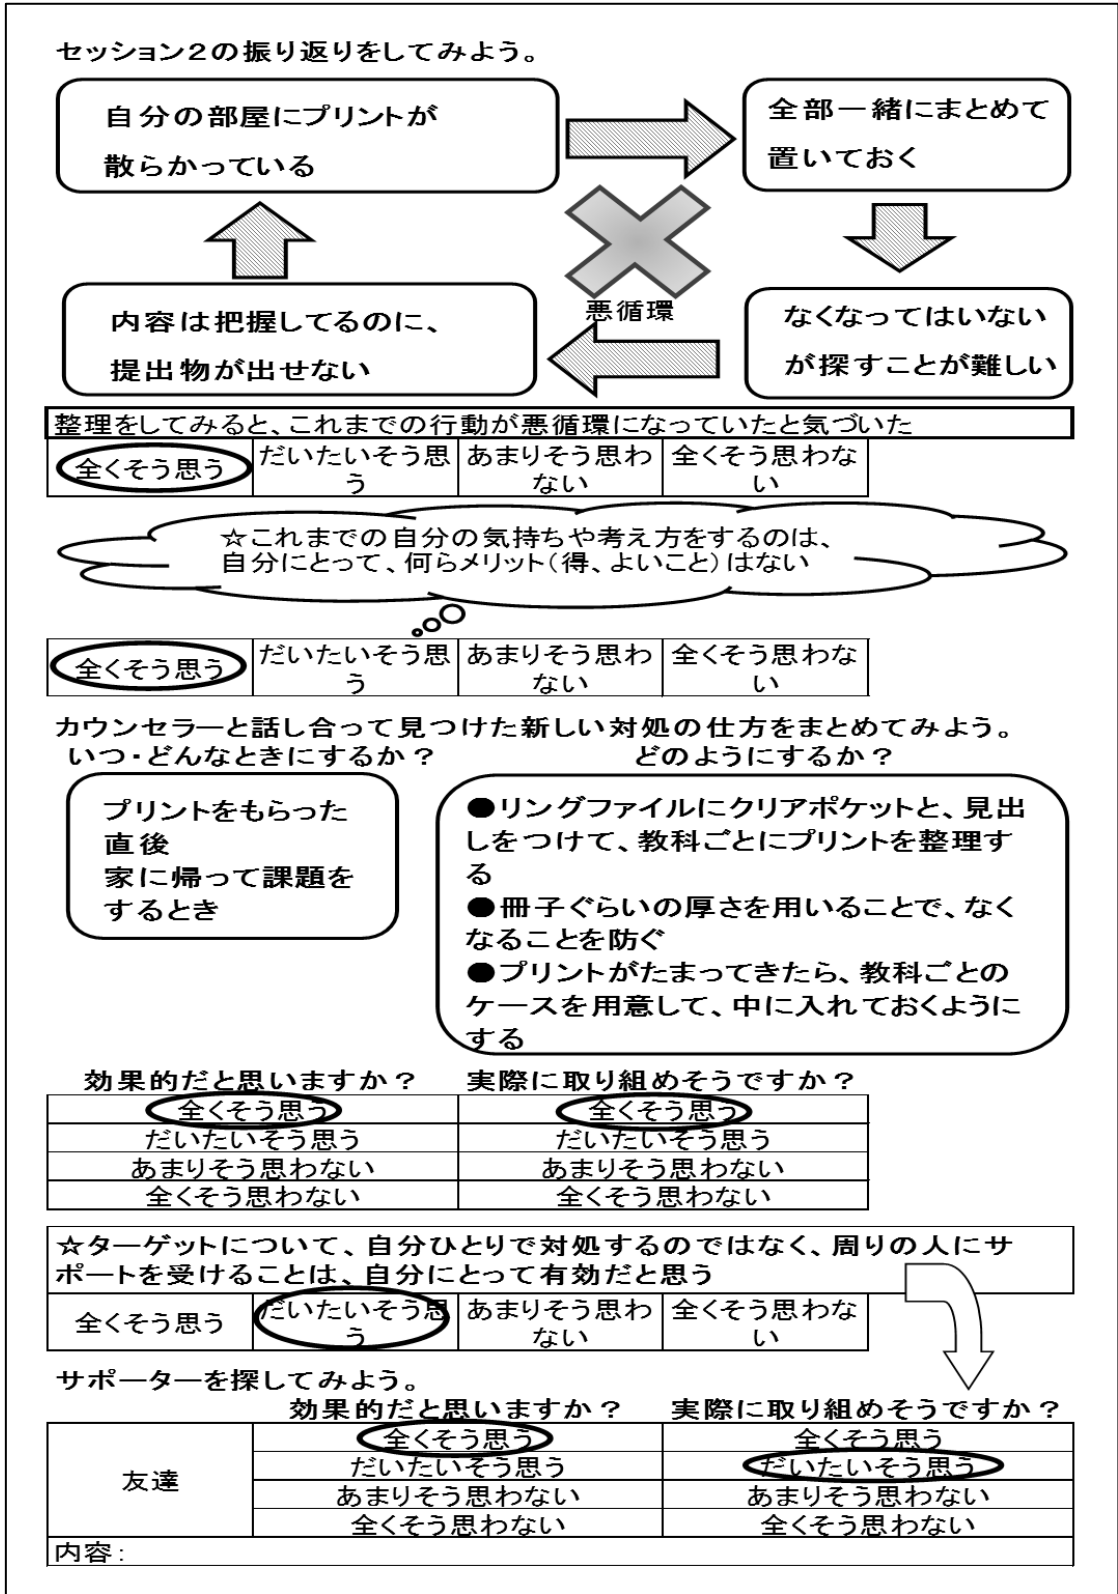 セッション2の振り返りをしてみよう。
自分の部屋にプリントが
散らかっている
全部一緒にまとめて
置いておく
悪循環
内容は把握してるのに、
提出物が出せない
なくなってはいない
が探すことが難しい
整理をしてみると、これまでの行動が悪循環になっていたと気づいた
全くそう思う
だいたいそう思
う
あまりそう思わ
ない
全くそう思わな
い
☆これまでの自分の気持ちや考え方をするのは、
自分にとって、何らメリット(得、よいこと)はない
全くそう思う
だいたいそう思
う
あまりそう思わ
ない
全くそう思わな
い
カウンセラーと話し合って見つけた新しい対処の仕方をまとめてみよう。
いつ・どんなときにするか?
どのようにするか?
プリントをもらった
直後
家に帰って課題を
するとき
●リングファイルにクリアポケットと、見出
しをつけて、教科ごとにプリントを整理す
る
●冊子ぐらいの厚さを用いることで、なく
なることを防ぐ
●プリントがたまってきたら、教科ごとの
ケースを用意して、中に入れておくように
する
効果的だと思いますか? 実際に取り組めそうですか?
全くそう思う 全くそう思う
だいたいそう思う だいたいそう思う
あまりそう思わない あまりそう思わない
全くそう思わない 全くそう思わない
☆ターゲットについて、自分ひとりで対処するのではなく、周りの人にサ
ポートを受けることは、自分にとって有効だと思う
全くそう思う
だいたいそう思
う
あまりそう思わ
ない
全くそう思わな
い
サポーターを探してみよう。
効果的だと思いますか? 実際に取り組めそうですか?
友達
全くそう思う 全くそう思う
だいたいそう思う だいたいそう思う
あまりそう思わない あまりそう思わない
全くそう思わない 全くそう思わない
内容: